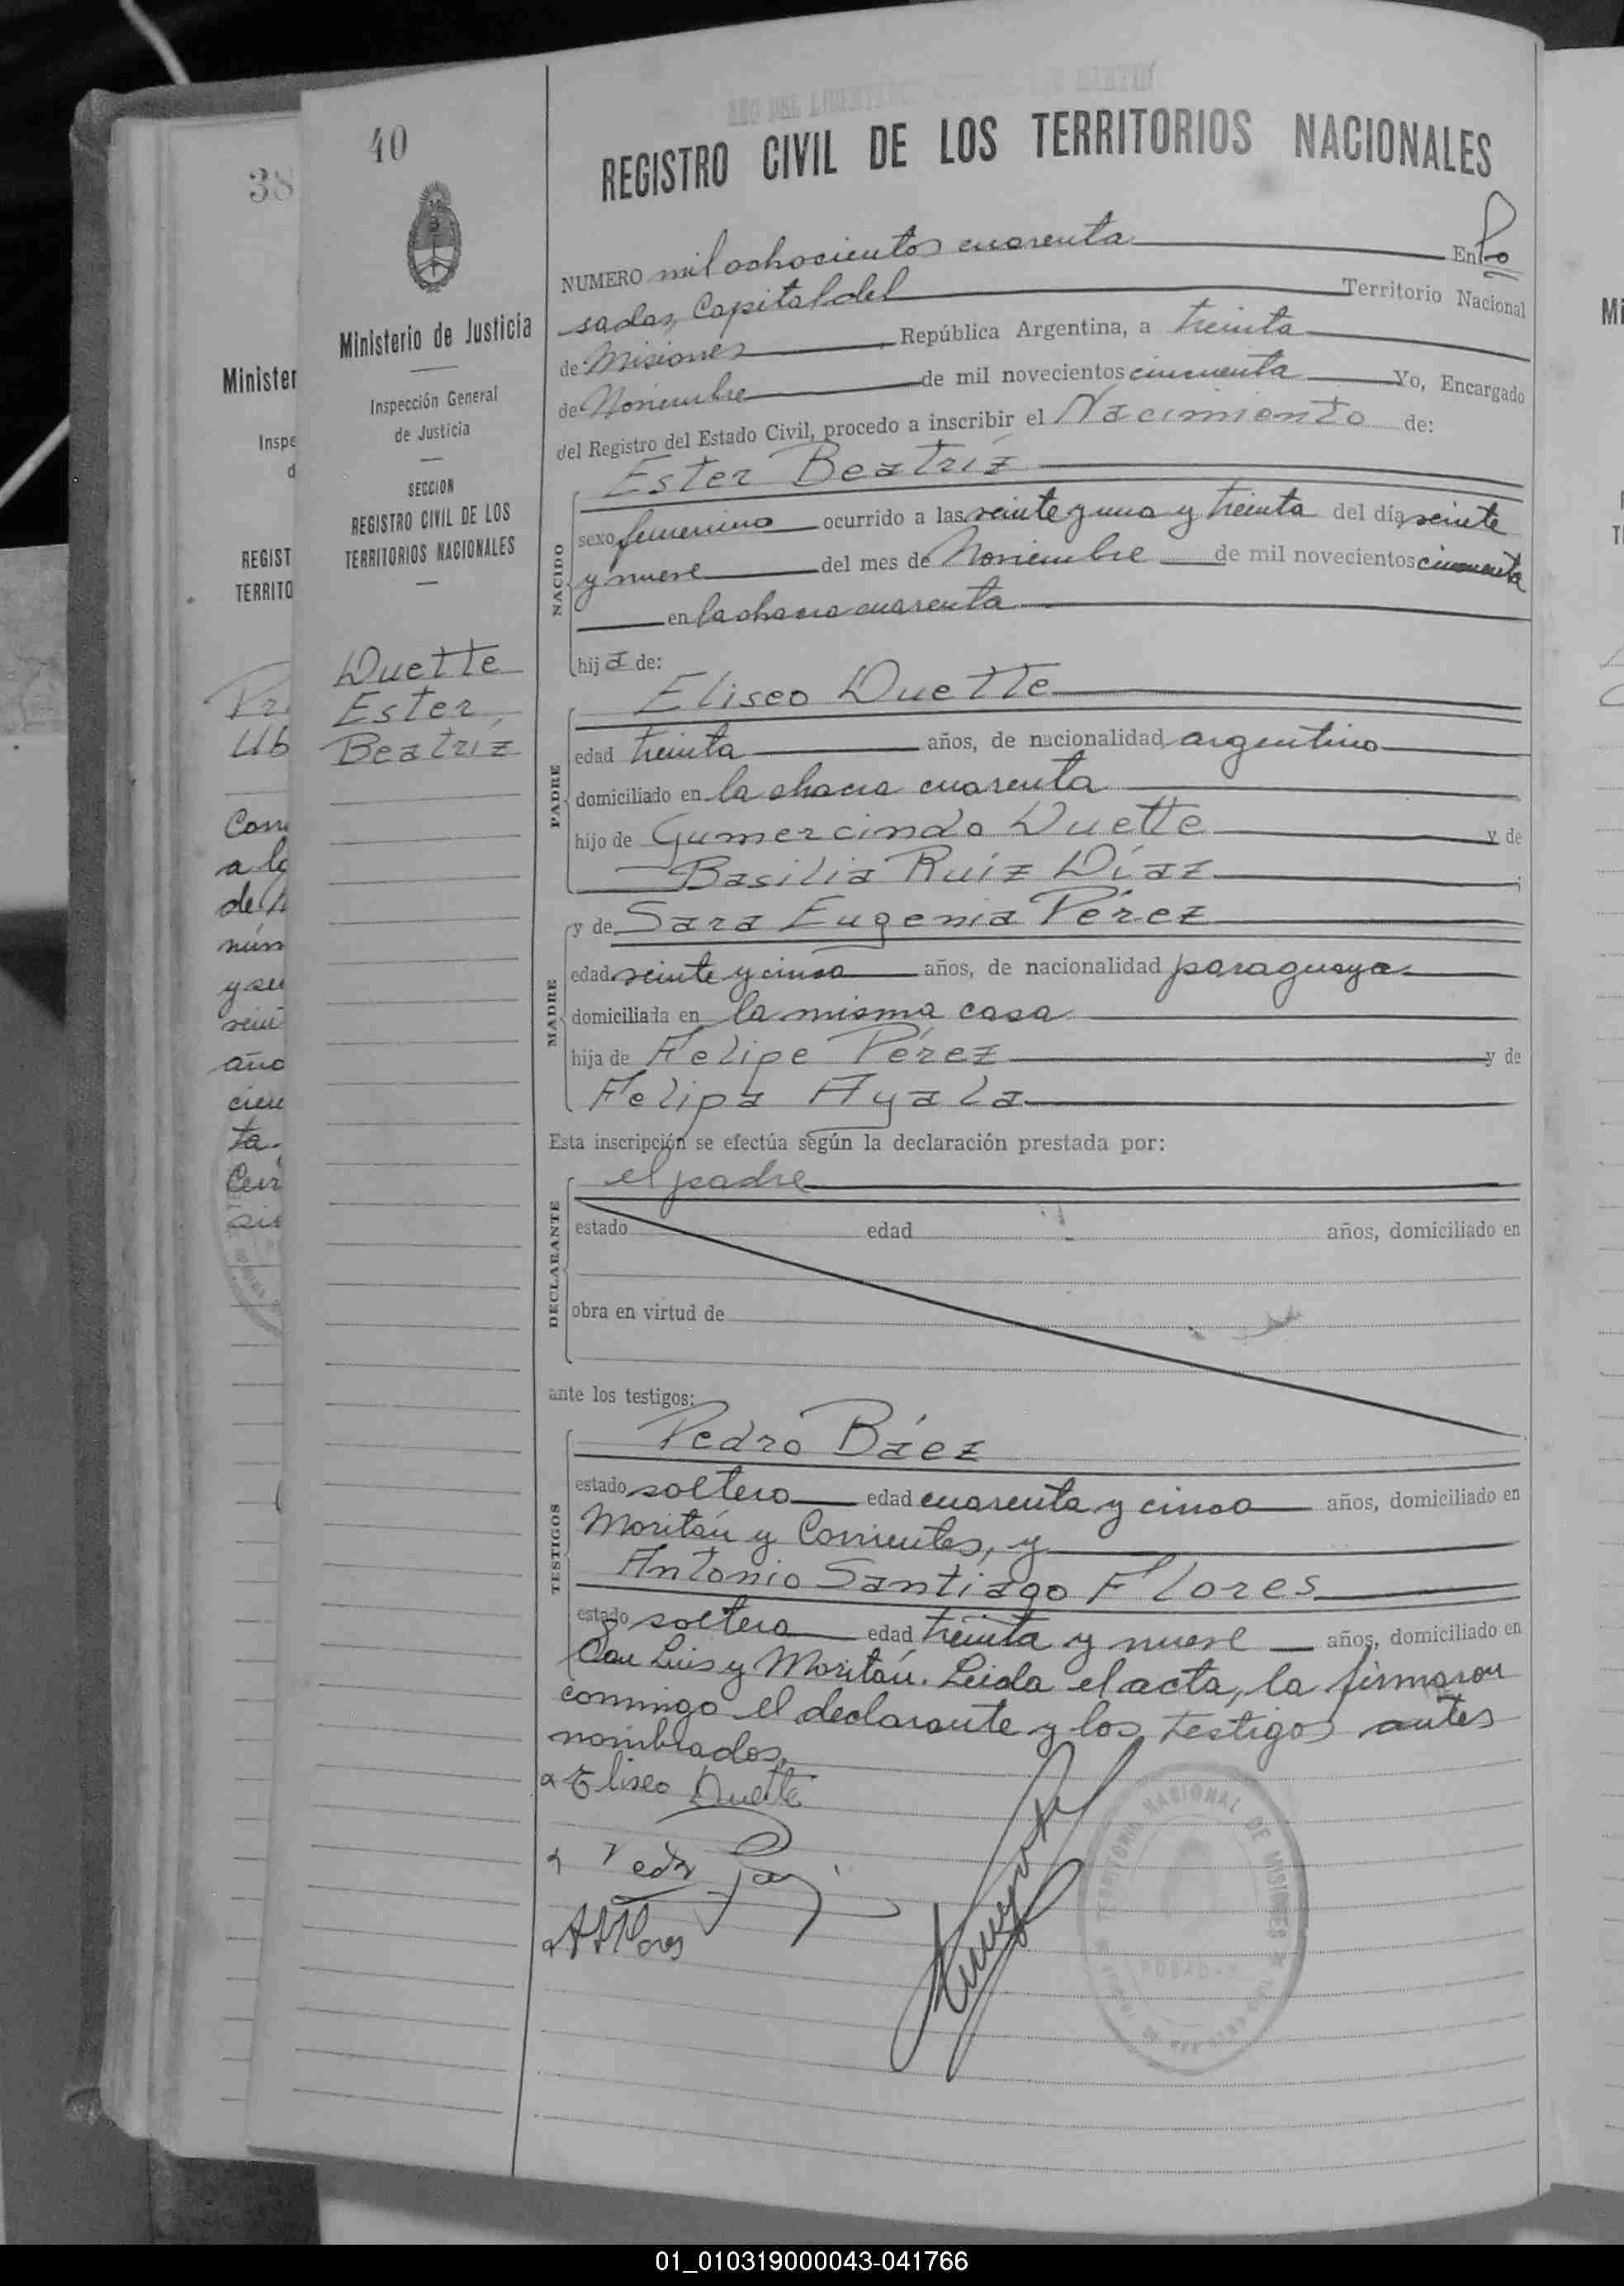 38
Minister
Inspe
d
REGIST
TERRITO
Ub
a la
de
núm
y se
año
ta.
40
Ministerio de Justicia
Inspección General
de Justicia
SECCION
REGISTRO CIVIL DE LOS
TERRITORIOS NACIONALES
Duette
Ester
Beatríz
AÑO DEL LIBERTADOR GENERAL SAN MARTIN
REGISTRO CIVIL DE LOS TERRITORIOS NACIONALES
NUMERO mil ochocientos cuarenta En Po
sadas, Capital del Territorio Nacional
de Misiones, República Argentina, a treinta
de Noviembre de mil novecientos cincuenta Yo, Encargado
del Registro del Estado Civil, procedo a inscribir el Nacimiento de:
Ester Beatríz
NACIDO
sexo femenino ocurrido a las veinte y una y treinta del día veinte
y nueve del mes de Noviembre de mil novecientos cincuenta
en la chacra cuarenta
hija de:
Eliseo Duette
PADRE
edad treinta años, de nacionalidad argentino
domiciliado en la chacra cuarenta
hijo de Gumercindo Duette y de
Basilia Ruíz Díaz ;
y de Sara Eugenia Pérez
MADRE
edad veinte y cinco años, de nacionalidad paraguaya
domiciliada en la misma casa
hija de Felipe Pérez y de
Felipa Ayala
Esta inscripción se efectúa según la declaración prestada por:
el padre
DECLARANTE
estado edad años, domiciliado en
obra en virtud de
ante los testigos:
Pedro Báez
TESTIGOS
estado soltero edad cuarenta y cinco años, domiciliado en
Moritán y Corrientes, y
Antonio Santiago Flores
estado soltero edad treinta y nueve años, domiciliado en
San Luis y Moritán. Leida el acta, la firmaron
conmigo el declarante y los testigos antes
nombrados.
Eliseo Duette
A S Flores
TERRITORIO NACIONAL DE MISIONES
Mi
01_010319000043-041766